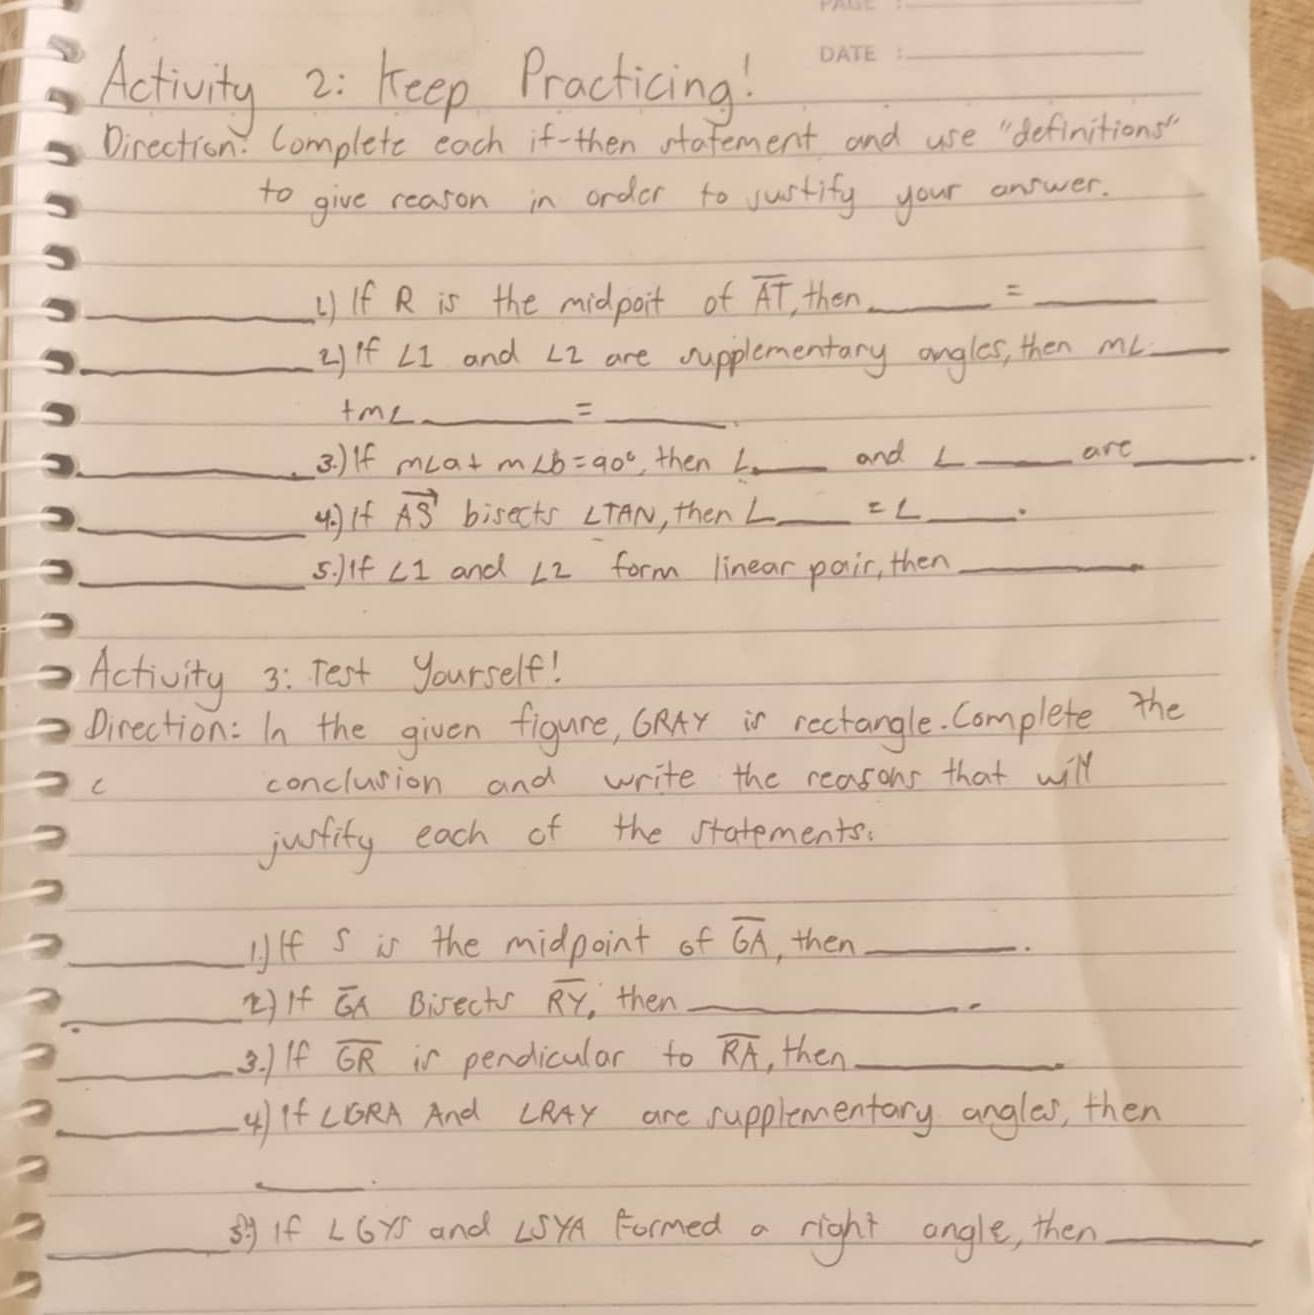 PAGE :
DATE :
Activity 2: Keep Practicing!
Direction: Complete each if-then statement and use "definitions"
to give reason in order to justify your answer.
__________1) If R is the midpoit of A͞T͞, then ______ = ______
__________2) If ∠1 and ∠2 are supplementary angles, then m∠____
+m∠______ = ______.
__________3.) If m∠a + m∠b = 90°, then ∠____ and ∠____ are ____.
__________4.) If AS→ bisects ∠TAN, then ∠____ = ∠____.
__________5.) If ∠1 and ∠2 form linear pair, then ________
Activity 3: Test Yourself!
Direction: In the given figure, GRAY is rectangle. Complete the
c conclusion and write the reasons that will
jusfify each of the statements.
________1.) If S is the midpoint of G͞A͞, then ________.
________2.) If G͞A͞ Bisects R͞Y͞, then ____________.
________3.) If G͞R͞ is pendicular to R͞A͞, then ________
________4.) If ∠GRA And ∠RAY are supplementary angles, then
______.
________5.) If ∠GYS and ∠SYA Formed a right angle, then ______